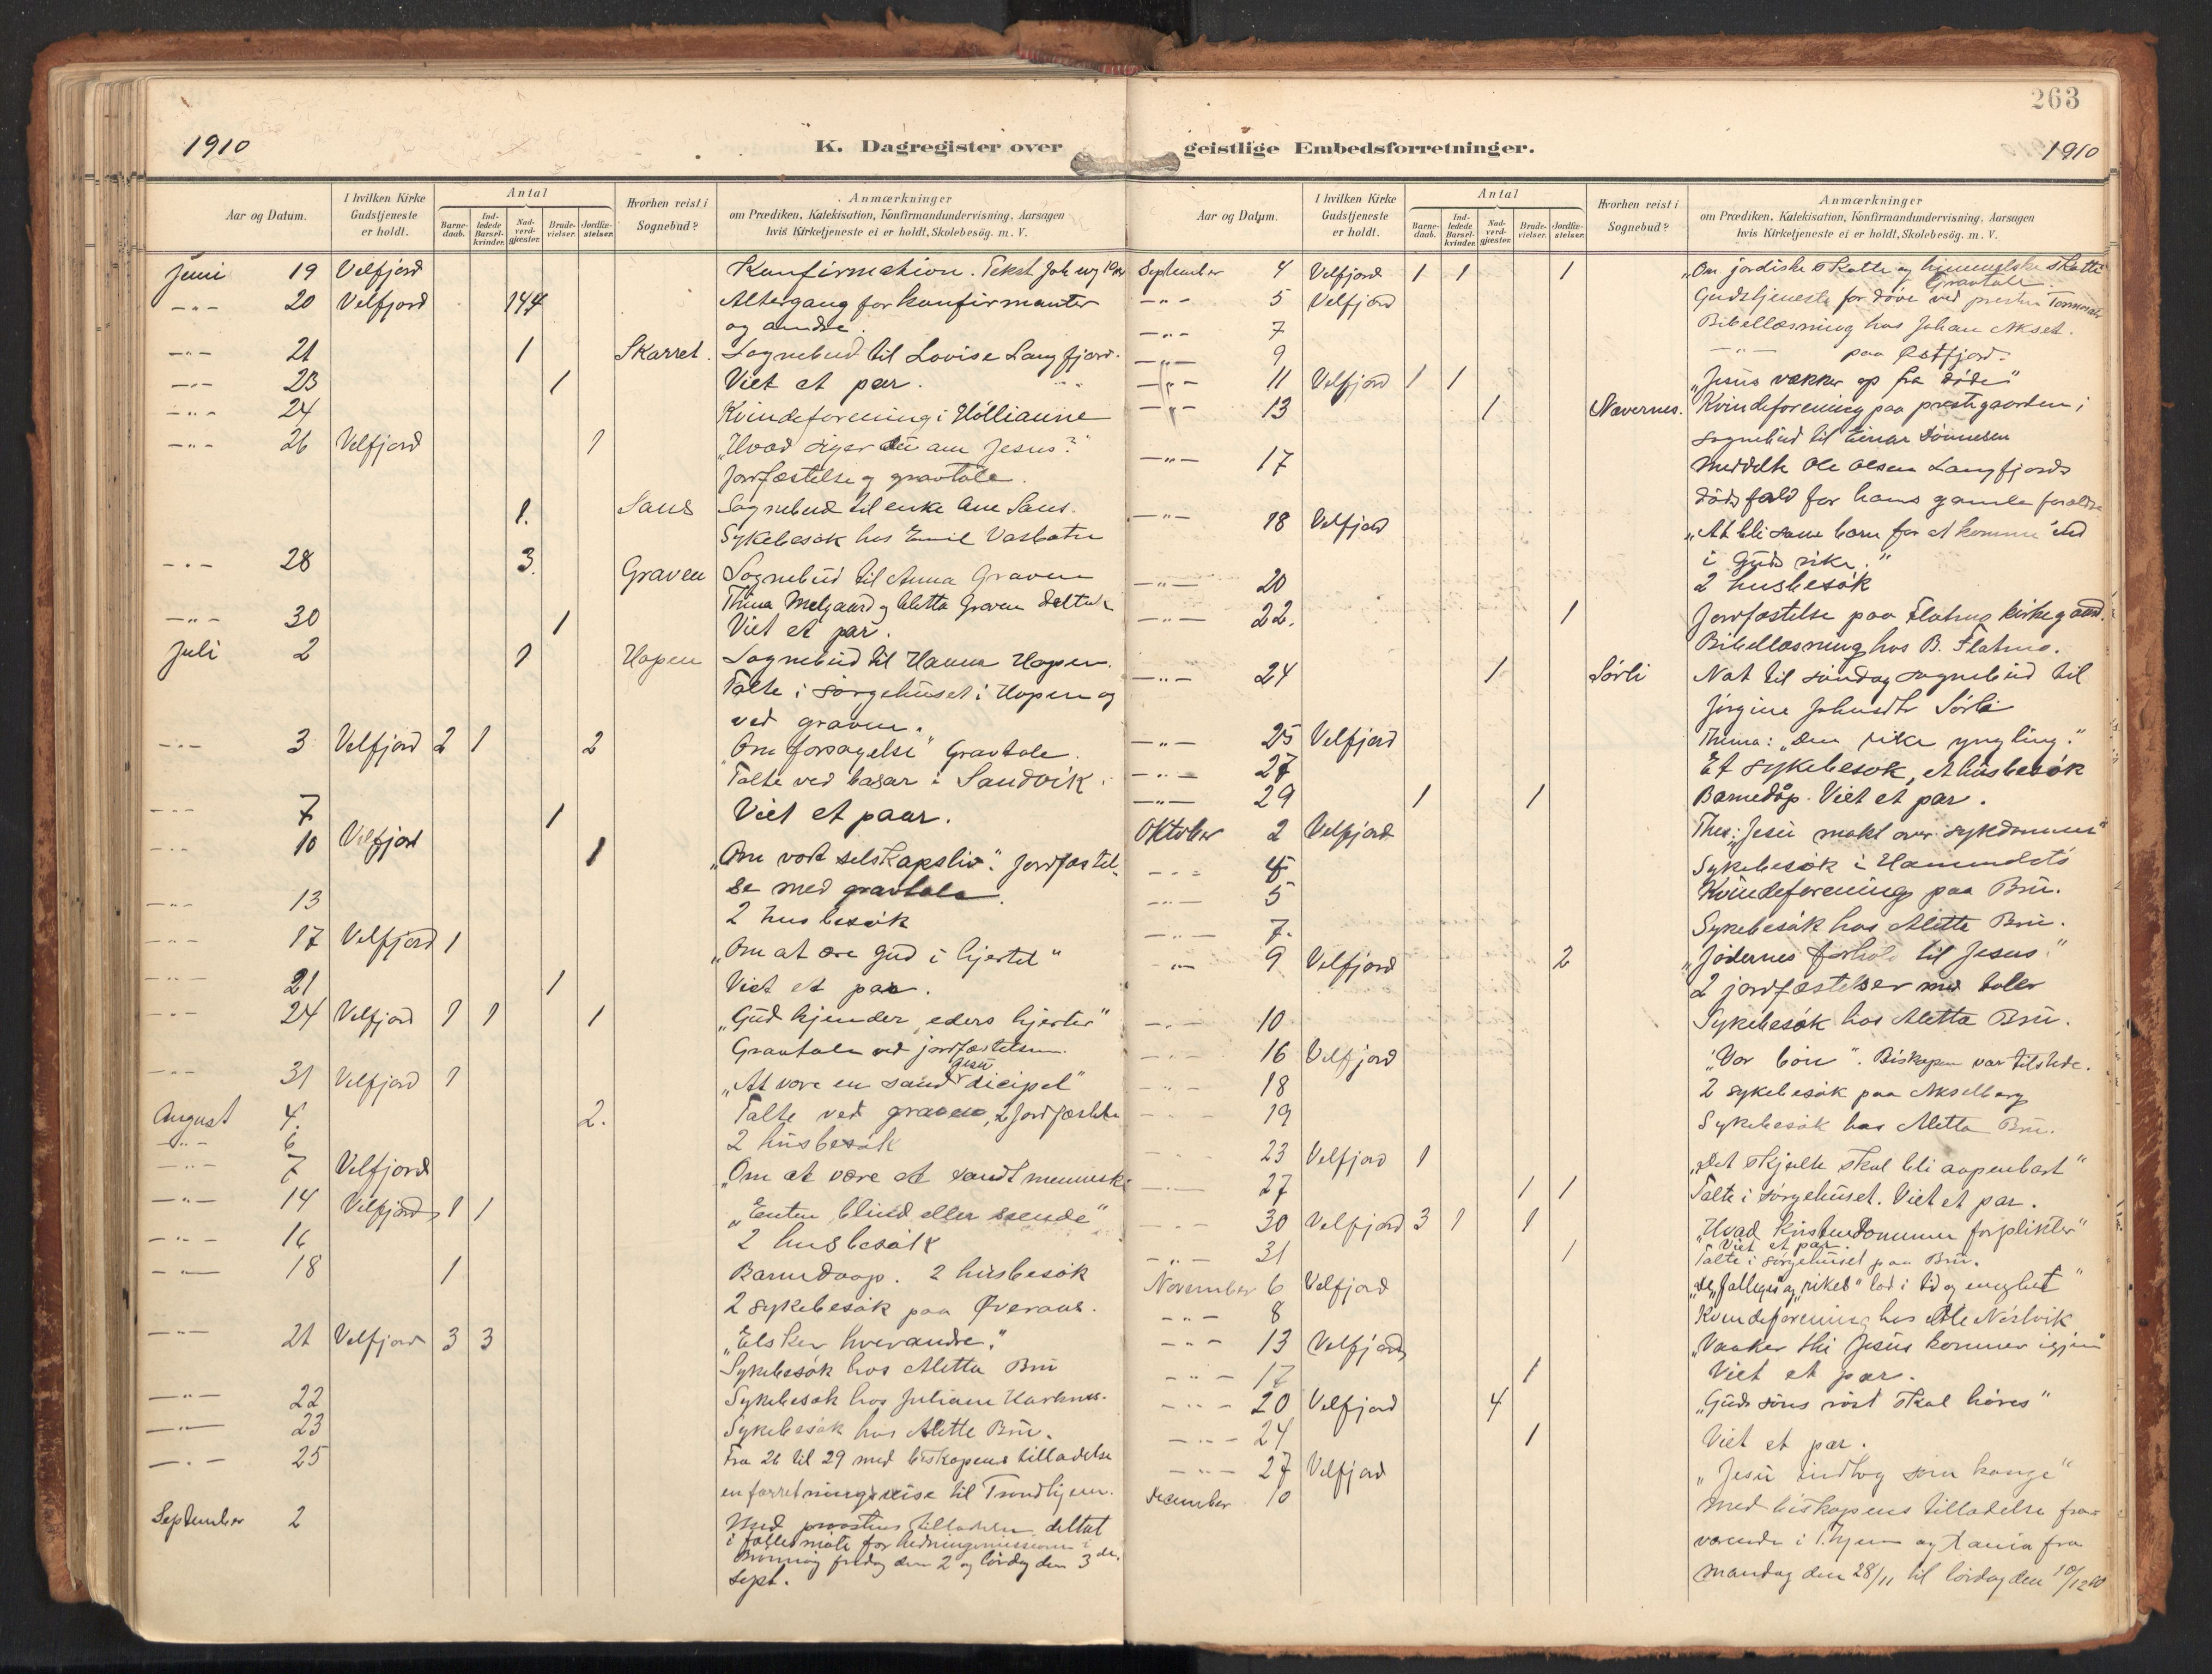 263
1910
K. Dagregister over geistlige Embedsforretninger.
1910
Aar og Datum.
I hvilken Kirke Gudstjeneste er holdt.
Antal
Barne-daab.
Ind-ledede Barsel-kvinder.
Nad-verd-gjester.
Brude-vielser.
Jordfæ-stelser.
Hvorhen reist i Sognebud?
Anmærkninger
om Prædiken, Katekisation, Konfirmandundervisning, Aarsagen
hvis Kirketjeneste ei er holdt, Skolebesøg. m. V.
Juni 19 Velfjord Konfirmation. Tekst Joh
-"- 20 Velfjord 144 Altergang for konfirmanter
og andre.
-"- 21 1 Skarret. Sognebud til Lovise Langfjord.
-"- 23 1 Viet et par.
-"- 24 Kvindeforening i
-"- 26 Velfjord 1 "Hvad siger du om Jesus?"
Jordfæstelse og gravtale.
1. Saus Sognebud til enke Ane Saus.
Sykebesøk hos Emil
-"- 28 3. Graven Sognebud til Anna Graven
Thina Melgaard og Aletta Graven deltok
-"- 30 1 Viet et par.
Juli 2 1 Hopen Sognebud til Hanna Hopen.
Talte i sørgehuset i Hopen og
ved graven.
-"- 3 Velfjord 2 1 2 "Om forsagelse" Gravtale.
Talte ved basar i Sandvik.
-"- 7 1 Viet et paar.
-"- 10 Velfjord 1 "Om vort selskapsliv." Jordfæstel-
se med gravtale.
-"- 13 2 husbesøk
-"- 17 Velfjord 1 "Om at ære Gud i hjertet"
-"- 21 1 Viet et par.
-"- 24 Velfjord 1 1 1 "Gud kjender eders hjerter"
Gravtale ved jordfæstelsen.
-"- 31 Velfjord 1 "At være en sand Jesu dicipel"
August 4. 2. Talte ved graven, 2 jordfæstelser
-"- 6 2 husbesøk
-"- 7 Velfjord "Om at være et sandt menneske
-"- 14 Velfjord 1 1 "Enten blind eller seende"
-"- 16 2 husbesøk
-"- 18 1 Barnedaap. 2 husbesøk
2 sykebesøk paa Øveraas.
-"- 21 Velfjord 3 3 "Elsker hverandre."
Sykebesøk hos Aletta Bru
-"- 22 Sykebesøk hos Juliane
-"- 23 Sykebesøk hos Aletta Bru.
-"- 25 Fra 26 til 29 med biskopens tilladelse
en forretningsreise til Trondhjem.
September 2 Med provstens tilladelse deltat
i fællesmøte for hedningemissionen i
Brønnøy fredag den 2 og lørdag den 3de
sept.
Aar og Datum.
I hvilken Kirke Gudstjeneste er holdt.
Antal
Barne-daab.
Ind-ledede Barsel-kvinder.
Nad-verd-gjester.
Brude-vielser.
Jordfæ-stelser.
Hvorhen reist i Sognebud?
Anmærkninger
om Prædiken, Katekisation, Konfirmandundervisning, Aarsagen
hvis Kirketjeneste ei er holdt, Skolebesøg. m. V.
September 4 Velfjord 1 1 1 "Om jordiske skatte og himmelske skatte"
Gravtale.
-"- 5 Velfjord Gudstjeneste for døve ved presten
-"- 7 Bibellæsning hos Johan Akset.
-"- 9 -"- paa
-"- 11 Velfjord 1 1 "Jesus vækker op fra døde"
-"- 13 1 Nevernes. Kvindeforening paa prestegaarden;
sognebud til Einar Tønnesen
-"- 17 Meddelte Ole Olsen Langfjords
dødsfald for hans gamle forældre
-"- 18 Velfjord "At bli som barn for at komme ind
i Guds rike."
-"- 20 2 husbesøk
-"- 22. 1 Jordfæstelse paa Flatmo kirkegaard.
Bibellæsning hos B. Flatmo.
-"- 24 1 Sørli Nat til søndag sognebud til
Jørgine Johnsdtr Sørli
-"- 25 Velfjord Thema: "den rike yngling."
-"- 27 Et sykebesøk, et husbesøk
-"- 29 1 1 Barnedåp. Viet et par.
Oktober 2 Velfjord Thes: "Jesu makt over sykdommen"
-"- 4 Sykebesøk i
-"- 5 Kvindeforening paa Bru.
-"- 7. Sykebesøk hos Aletta Bru.
-"- 9 Velfjord 2 "Jødernes forhold til Jesus."
2 jordfæstelser med taler
-"- 10 Sykebesøk hos Aletta Bru.
-"- 16 Velfjord "Vor bøn". Biskopen var tilstede.
-"- 18 2 sykebesøk paa Akselberg
-"- 19 Sykebesøk hos Aletta Bru.
-"- 23 Velfjord 1 "Det skjulte skal bli aapenbart"
-"- 27 1 1 Talte i sørgehuset. Viet et par.
-"- 30 Velfjord 3 1 1 "Hvad kristendommen forplikter"
Viet et par.
-"- 31 1 Talte i sørgehuset paa Bru.
November 6 Velfjord "De "fattiges" og "rikes" lod i tid og evighet"
-"- 8 Kvindeforening hos Ole Nestvik
-"- 13 Velfjord "Vaaker thi Jesus kommer igjen"
-"- 17 1 Viet et par.
-"- 20 Velfjord 4 "Guds søns røst skal høres"
-"- 24 1 Viet et par.
-"- 27 Velfjord "Jesu indtog som konge"
December 10 Med biskopens tilladelse fra-
værende i T.hjem og Xania fra
mandag den 28/11 til lørdag den 10/12